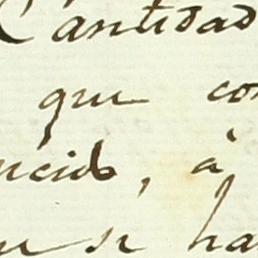 Cantidad
que con
ucido, à
se ha